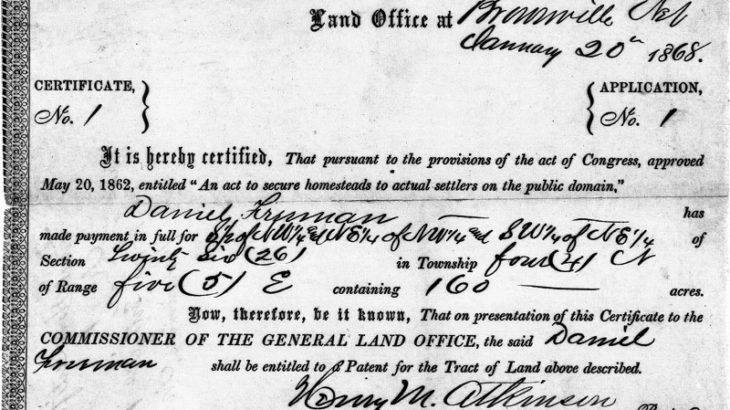 Land Office at Brownville Neb
January 20th 1868.
CERTIFICATE, APPLICATION,
No. 1 No. 1
It is hereby certified, That pursuant to the provisions of the act of Congress, approved
May 20, 1862, entitled “An act to secure homesteads to actual settlers on the public domain,”
Daniel Freeman has
made payment in full for S½ of NW¼ and NE¼ of NW¼ and SW¼ of NE¼ of
Section Twenty Six (26) in Township four (4) N
of Range five (5) E containing 160 acres.
Now, therefore, be it known, That on presentation of this Certificate to the
COMMISSIONER OF THE GENERAL LAND OFFICE, the said Daniel
Freeman shall be entitled to a Patent for the Tract of Land above described.
Henry M. Atkinson